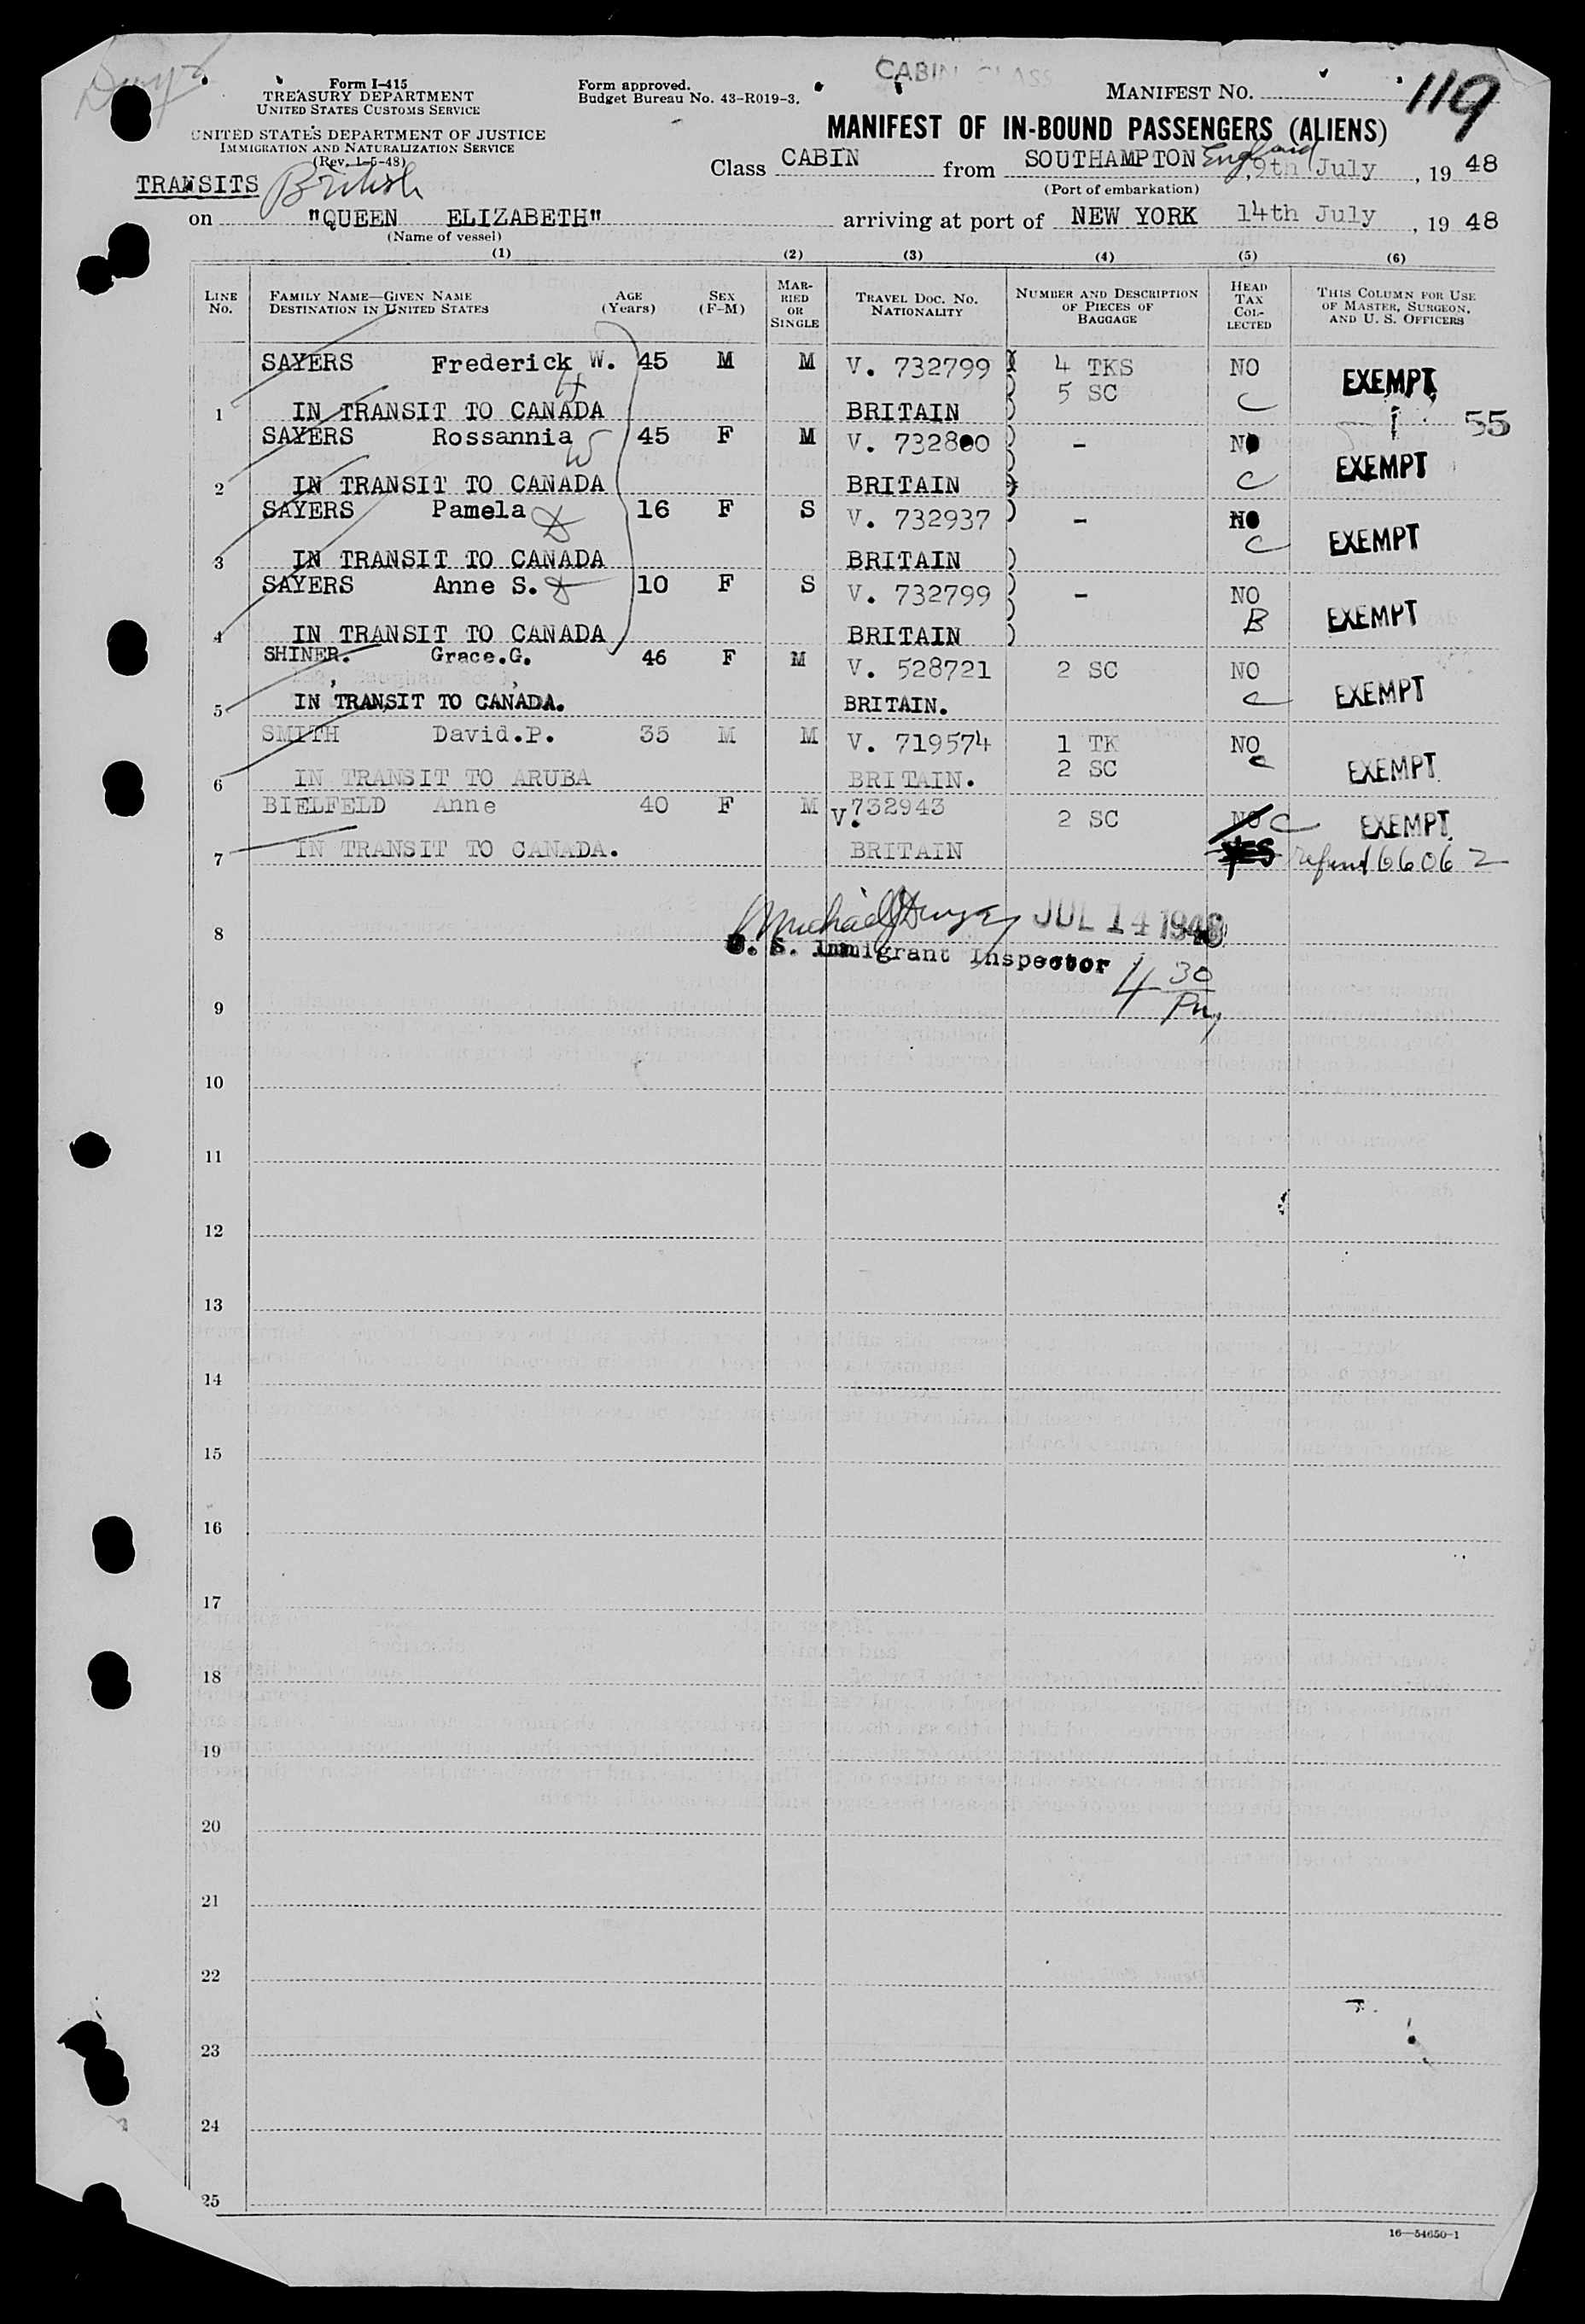 CABIN CLASS
Form I-415
TREASURY DEPARTMENT
UNITED STATES CUSTOMS SERVICE
Form approved.
Budget Bureau No. 43-R019-3.
MANIFEST NO. 119
UNITED STATES DEPARTMENT OF JUSTICE
IMMIGRATION AND NATURALIZATION SERVICE
(Rev. 1-5-48)
MANIFEST OF IN-BOUND PASSENGERS (ALIENS)
TRANSITS British
Class CABIN from SOUTHAMPTON England, 9th July, 19 48
(Port of embarkation)
on "QUEEN ELIZABETH" arriving at port of NEW YORK 14th July, 19 48
(Name of vessel)
(1) (2) (3) (4) (5) (6)
LINE NO. FAMILY NAME—GIVEN NAME DESTINATION IN UNITED STATES AGE (Years) SEX (F-M) MARRIED OR SINGLE TRAVEL DOC. NO. NATIONALITY NUMBER AND DESCRIPTION OF PIECES OF BAGGAGE HEAD TAX COLLECTED THIS COLUMN FOR USE OF MASTER, SURGEON, AND U. S. OFFICERS
SAYERS Frederick W. 45 M M V. 732799 4 TKS NO EXEMPT
H 5 SC
1 IN TRANSIT TO CANADA BRITAIN C 55
SAYERS Rossannia 45 F M V. 732800 - NO EXEMPT
W
2 IN TRANSIT TO CANADA BRITAIN C
SAYERS Pamela D 16 F S V. 732937 - NO EXEMPT
3 IN TRANSIT TO CANADA BRITAIN C
SAYERS Anne S. D 10 F S V. 732799 - NO EXEMPT
4 IN TRANSIT TO CANADA BRITAIN B
SHINER. Grace.G. 46 F M V. 528721 2 SC NO EXEMPT
5 IN TRANSIT TO CANADA. BRITAIN. C
SMITH David.P. 35 M M V. 719574 1 TK NO EXEMPT
6 IN TRANSIT TO ARUBA BRITAIN. 2 SC C
BIELFELD Anne 40 F M V.732943 2 SC NO C EXEMPT
7 IN TRANSIT TO CANADA. BRITAIN YES refund 66062
8 Michael J Dwyer JUL 14 1948
U. S. Immigrant Inspector
4 30 PM
9
10
11
12
13
14
15
16
17
18
19
20
21
22
23
24
25
16—54650-1